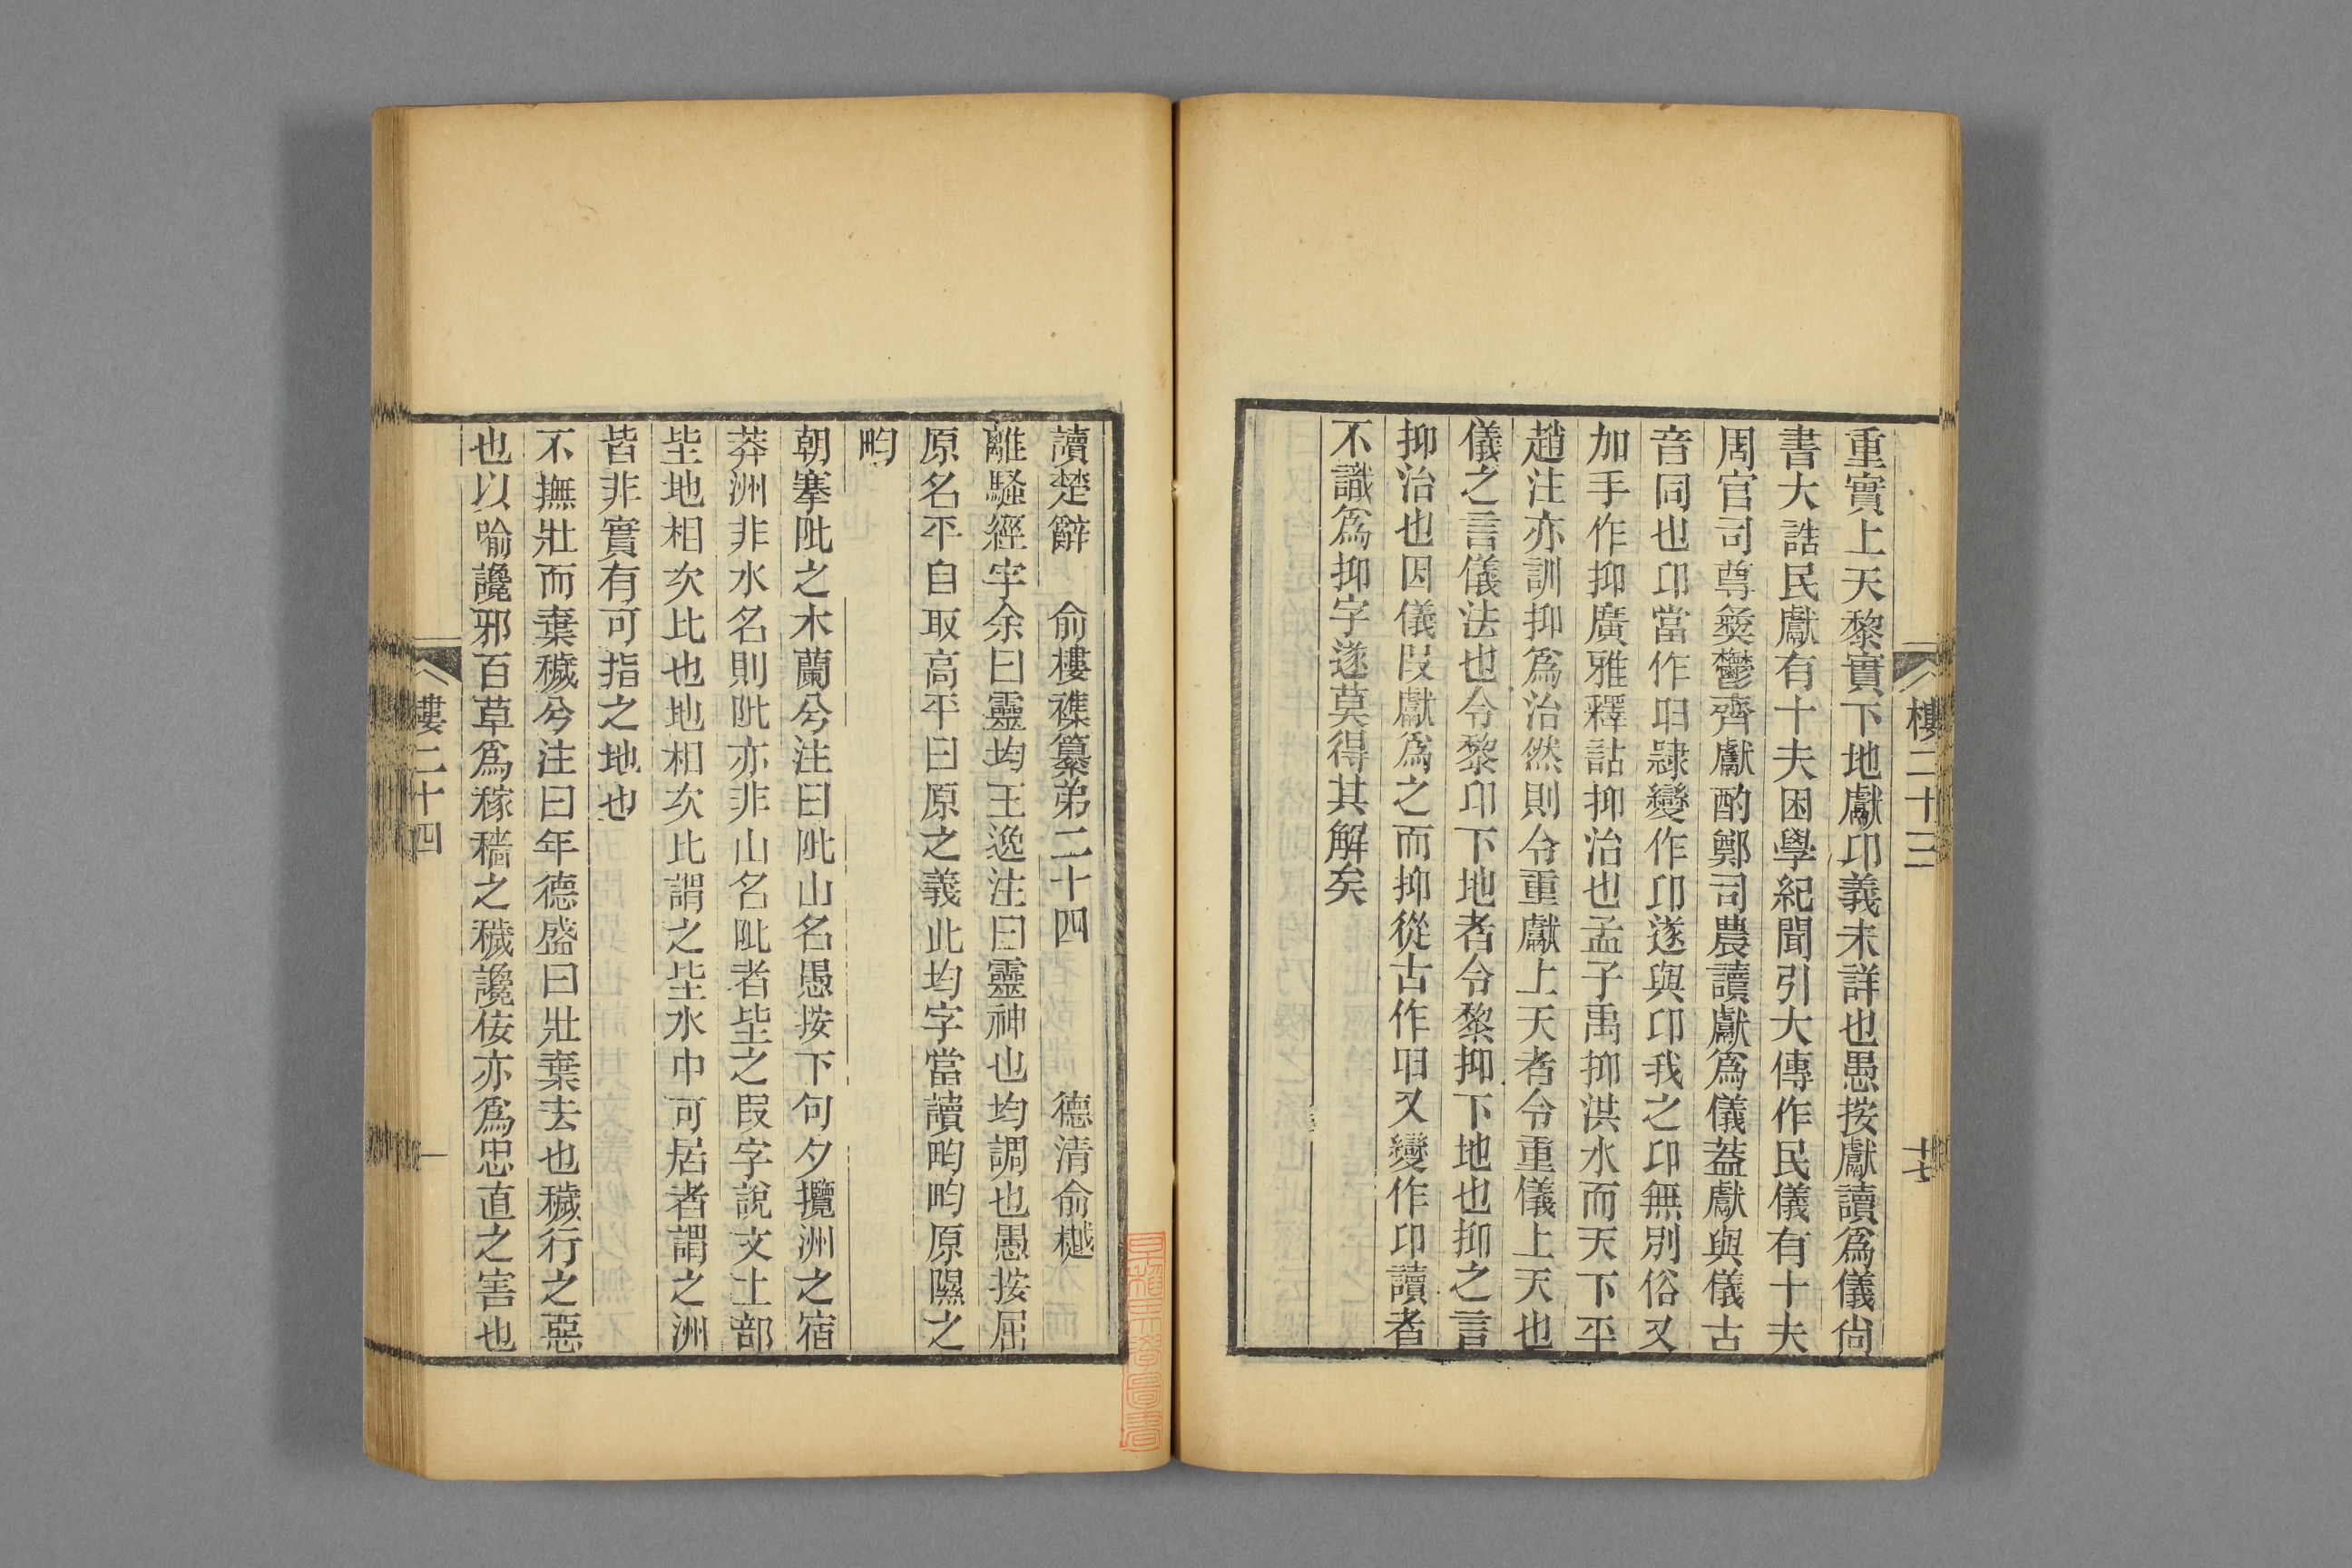 樓二十三
十七
重實上天黎實下地獻卬義未詳也愚按獻讀爲儀尙
書大誥民獻有十夫困學紀聞引大傳作民儀有十夫
周官司尊彝鬱齊獻酌鄭司農讀獻爲儀葢獻與儀古
音同也卬當作𢑏隸變作卬遂與卬我之卬無別俗又
加手作抑廣雅釋詁抑治也孟子禹抑洪水而天下平
趙注亦訓抑爲治然則令重獻上天者令重儀上天也
儀之言儀法也令黎卬下地者令黎抑下地也抑之言
抑治也因儀叚獻爲之而抑從古作𢑏又變作卬讀者
不識爲抑字遂莫得其解矣
讀楚辭 俞樓襍纂弟二十四 德清俞樾
離騷經字余曰靈均王逸注曰靈神也均調也愚按屈
原名平自取高平曰原之義此均字當讀畇畇原隰之
畇
朝搴阰之木蘭兮注曰阰山名愚按下句夕攬洲之宿
莽洲非水名則阰亦非山名阰者坒之叚字說文土部
坒地相次比也地相次比謂之坒水中可居者謂之洲
皆非實有可指之地也
不撫壯而棄穢兮注曰年德盛曰壯棄去也穢行之惡
也以喻讒邪百草爲稼穡之穢讒佞亦爲忠直之害也
樓二十四
一